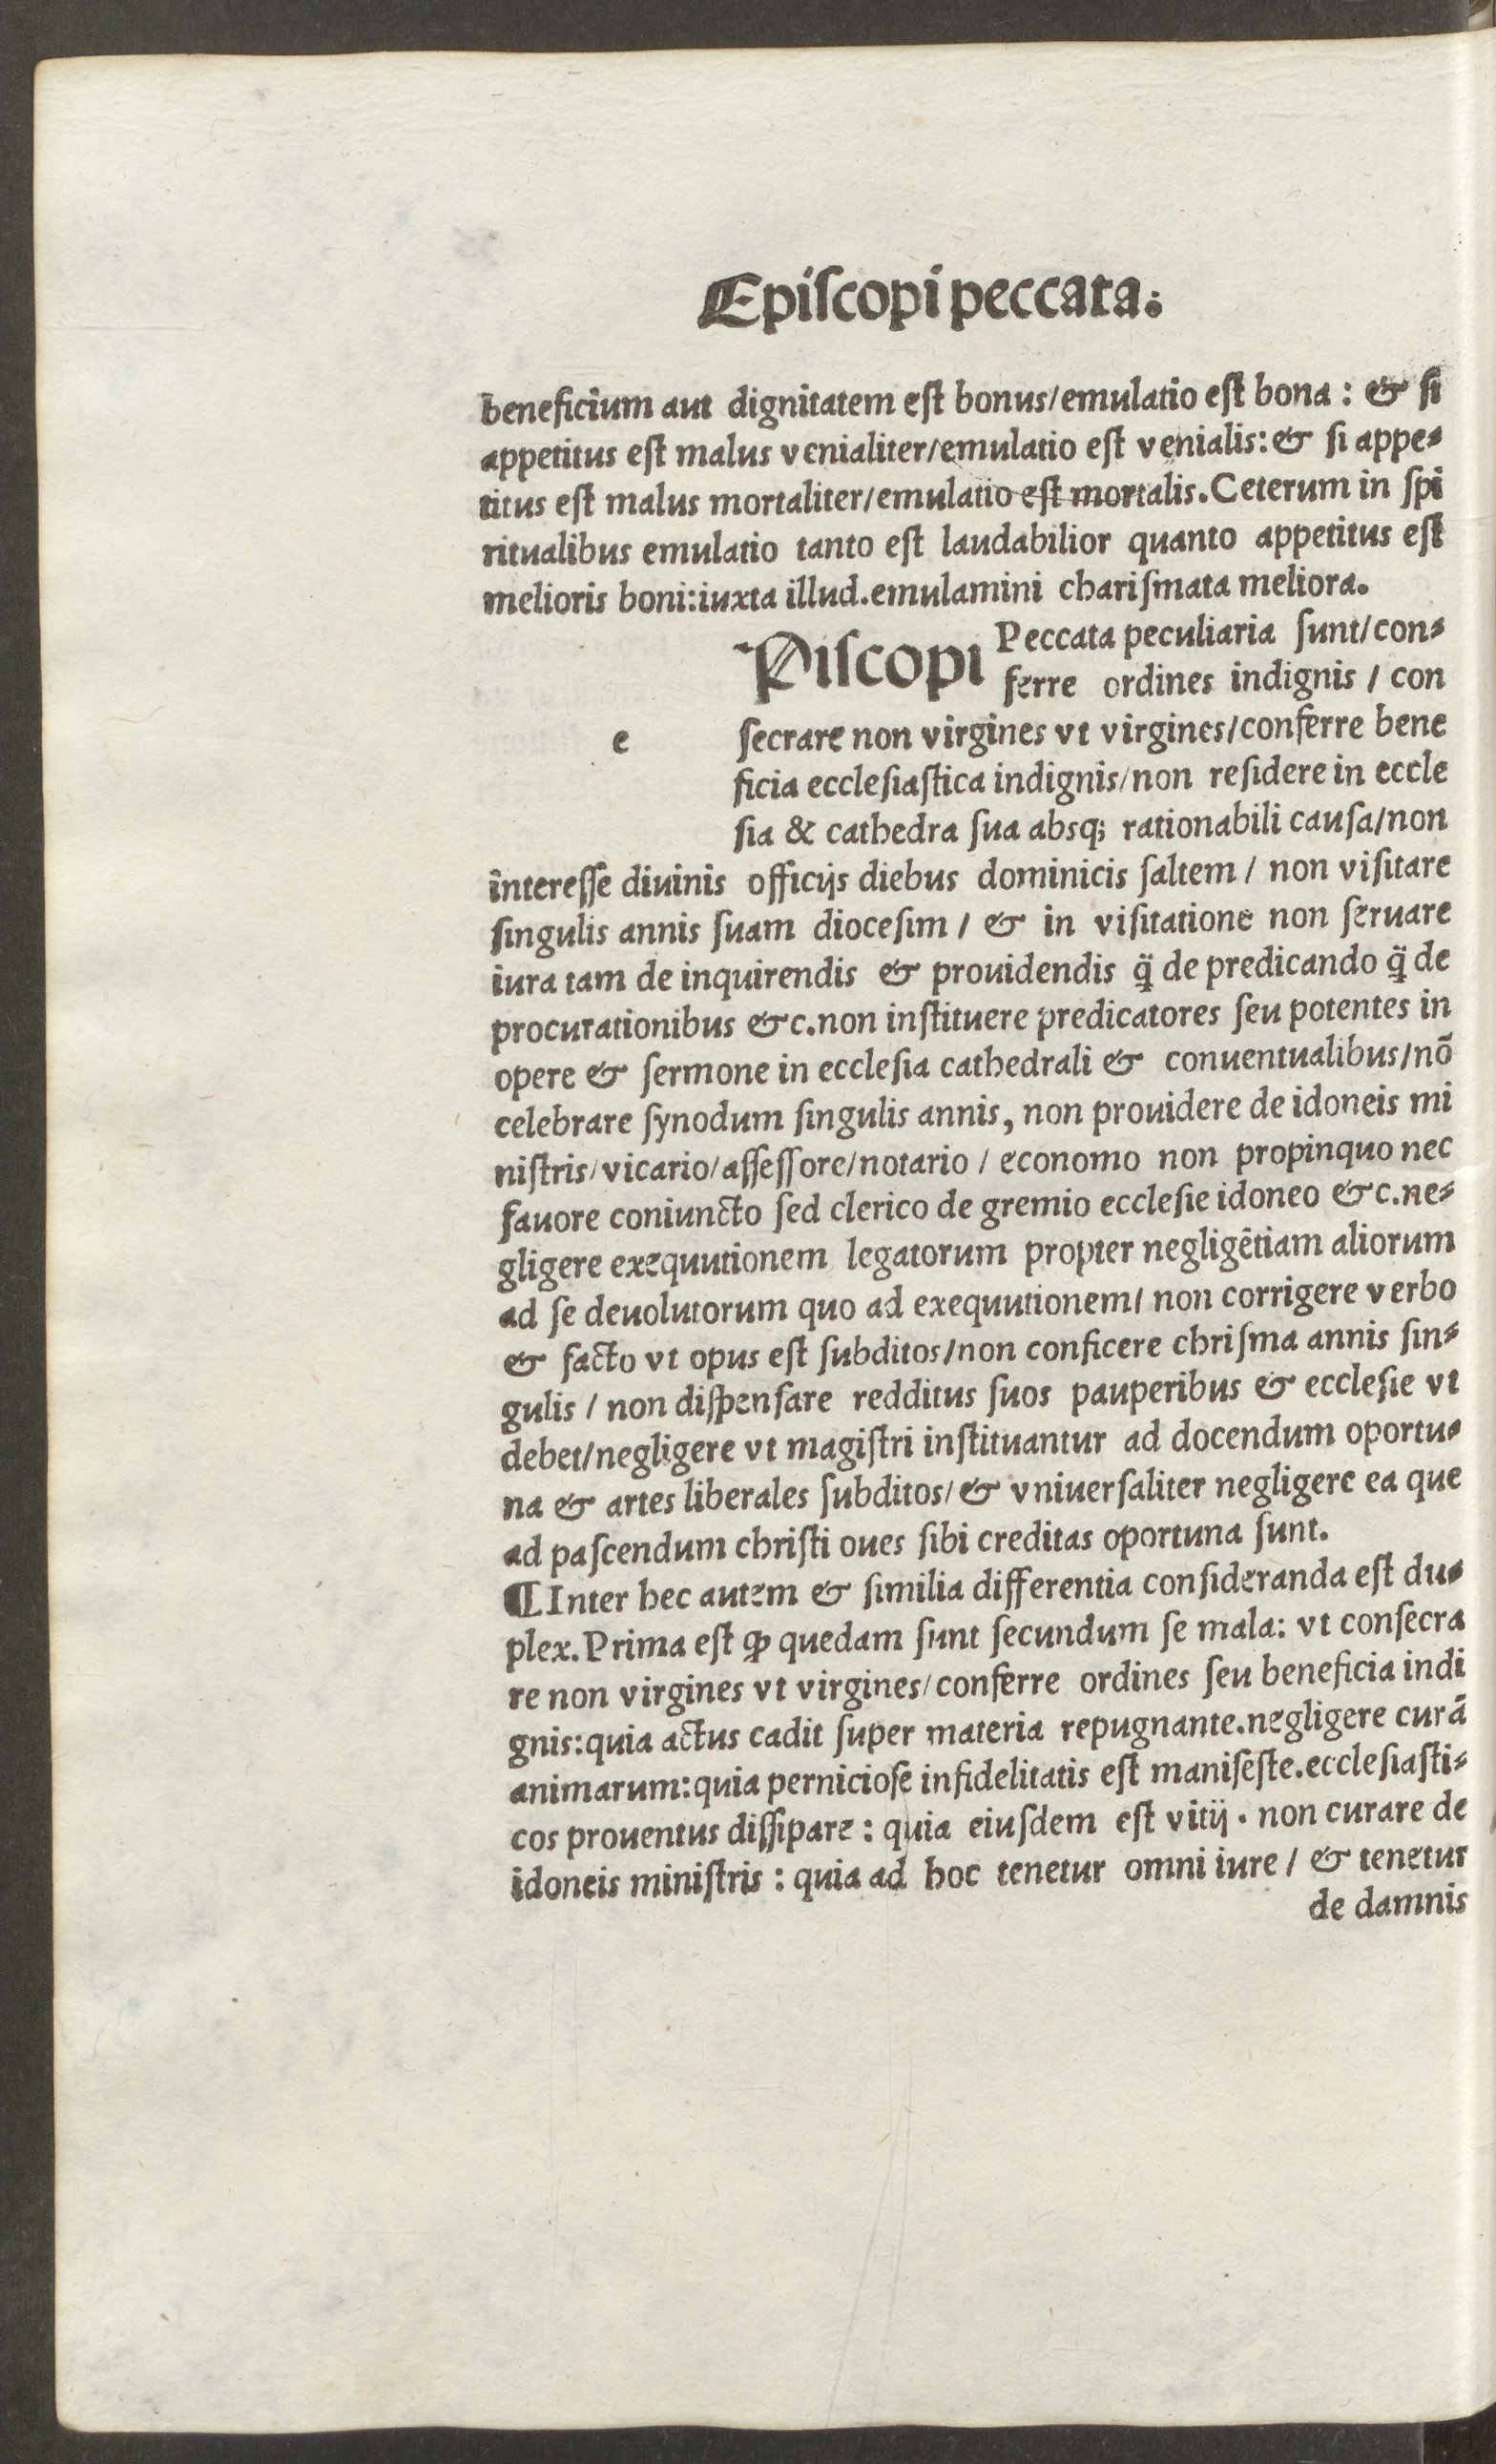 Epiſcopi peccata:
beneficium aut dignitatem eſt bonus/emulatio eſt bona : & ſi
appetitus eſt malus venialiter/emulatio eſt venialis: & ſi appe⸗
titus eſt malus mortaliter/emulatio eſt mortalis. Ceterum in ſpi
ritualibus emulatio tanto eſt laudabilior quanto appetitus eſt
melioris boni:iuxta illud.emulamini chariſmata meliora.
Piſcopi Peccata peculiaria ſunt/con⸗
ferre ordines indignis / con
e ſecrare non virgines vt virgines/conferre bene
ficia eccleſiaſtica indignis/non reſidere in eccle
ſia & cathedra ſua absq; rationabili cauſa/non
intereſſe diuinis officijs diebus dominicis ſaltem / non viſitare
ſingulis annis ſuam dioceſim / & in viſitatione non ſeruare
iura tam de inquirendis & prouidendis q̃ de predicando q̃ de
procurationibus &c.non inſtituere predicatores ſeu potentes in
opere & ſermone in eccleſia cathedrali & conuentualibus/nõ
celebrare ſynodum ſingulis annis, non prouidere de idoneis mi
niſtris/vicario/aſſeſſore/notario / economo non propinquo nec
fauore coniuncto ſed clerico de gremio eccleſie idoneo &c.ne⸗
gligere exequutionem legatorum propter negligẽtiam aliorum
ad ſe deuolutorum quo ad exequutionem/ non corrigere verbo
& facto vt opus eſt ſubditos/non conficere chriſma annis ſin⸗
gulis / non diſpenſare redditus ſuos pauperibus & eccleſie vt
debet/negligere vt magiſtri inſtituantur ad docendum oportu⸗
na & artes liberales ſubditos/& vniuerſaliter negligere ea que
ad paſcendum chriſti oues ſibi creditas oportuna ſunt.
¶Inter hec autem & ſimilia differentia conſideranda eſt du⸗
plex.Prima eſt ꝙ quedam ſunt ſecundum ſe mala: vt conſecra
re non virgines vt virgines/conferre ordines ſeu beneficia indi
gnis:quia actus cadit ſuper materia repugnante.negligere curã
animarum:quia pernicioſe infidelitatis eſt manifeſte.eccleſiaſti⸗
cos prouentus diſſipare : quia eiuſdem eſt vitij . non curare de
idoneis miniſtris : quia ad hoc tenetur omni iure / & tenetur
de damnis